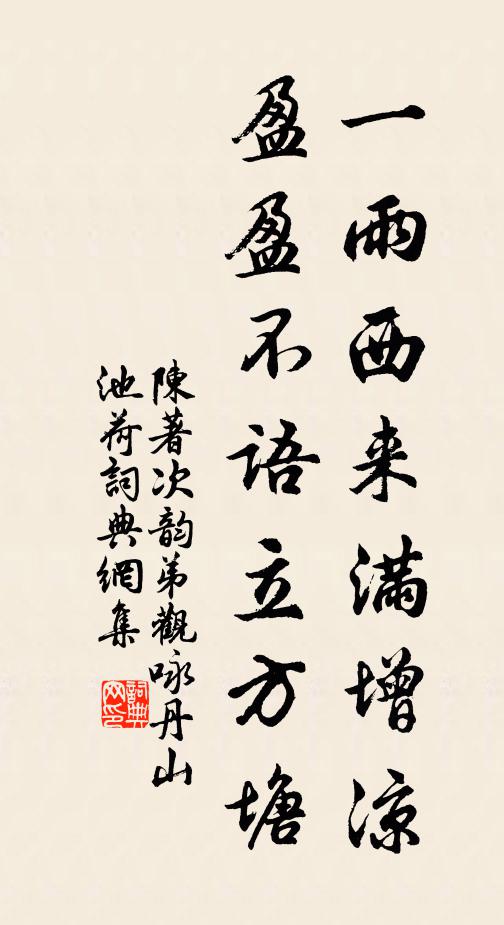 一雨西来满增凉
盈盈不语立方塘
陳著次韵弟觀咏丹山
池荷詞典網集
詞典网印